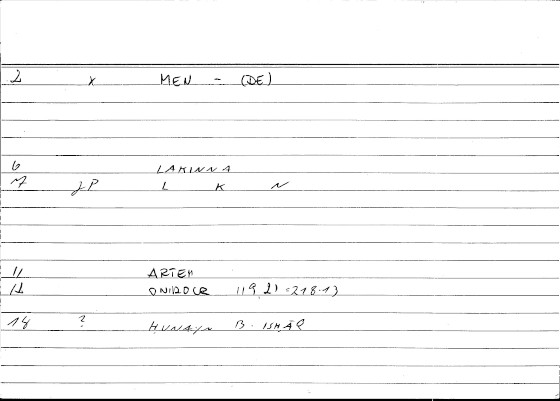 2 x MEN - (DE)
6 LAKINNA
7 2P L K N
11 ARTEM
12 ONIROCR 119, 21 = 218.13
14 ? HUNAYN B. ISHĀQ